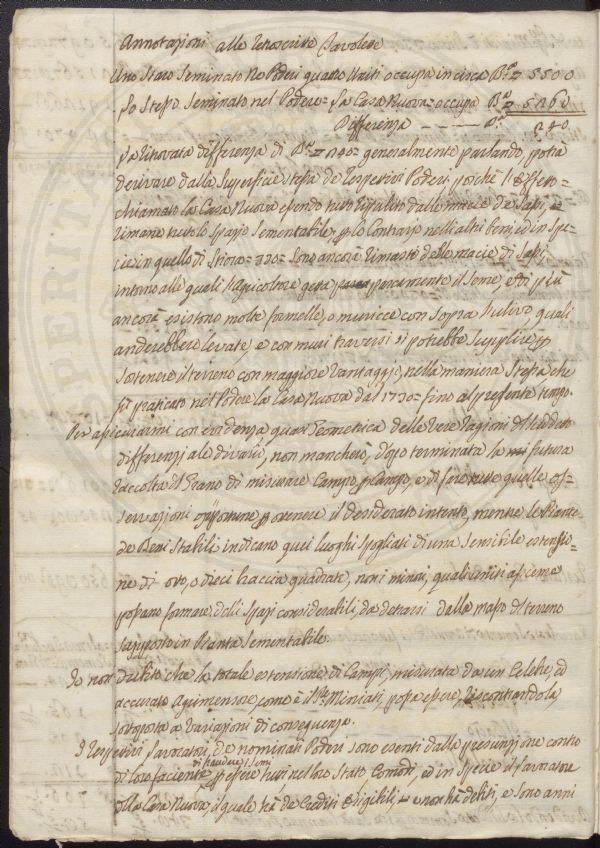 Annotazioni alle retroscritte Tavolette
Uno Staro Seminato ne Poderi quattro Uniti occupa in circa Bª = 5500
Lo Stesso Seminato nel Podere = La Casa Nuova = occupa Bª = 5260
Differenza — — — Bª 240
La ritrovata differenza di Bª = 240 = generalmente parlando, potrà
derivare dalla Superficie stessa de respettivi Poderi poiché l'Effetto =
chiamato la Casa Nuova essendo tutto ripulito dalle macie de Sassi,
rimane tutto lo spazio Sementabile; Lo Contrario nelli altri beni, ed in spe-
cie in quello di Stiora = 330 = Sono ancora rimaste delle macie di Sassi,
intorno alle quali l'Agricoltore getta parcamente il Seme, e di più
ancora esistono molte formelle, o muricce con sopra Sulivi, quali
anderebbero levate, e con muri traversi si potrebbe Supplire p
sostenere il terreno con maggiore Vantaggio, nella maniera Stessa che
fu praticato nel Podere la Casa Nuova dal 1730 = fino al presente tempo.
Per assicurarmi con evidenza quasi Geometrica delle Vere ragioni del sudduto
differenziale divario, non mancherò, dopo terminata la futura
raccolta del Grano di misurare Campo, p Campo, e di fare tutte quelle os-
servazzioni opportune p ottenere il desiderato intento, mentre le Piante
de Beni Stabili indicano quei luoghi spogliati di una Sensibile estensio-
ne di otto, o dieci braccia quadrate, non i minimi, quali uniti assieme
possono formare delli spazi considerabili, da detrarsi dalla massa del terreno
supposto in Pianta Sementabile.
Io non dubito che la totale estensione di Campi, misurata da un Celebre, ed
accurato Agrimensore, come è il Sig.re Miniati, possa essere, riscontrandola,
sottoposta a Variazioni di conseguenza.
I respettivi Lavoratori, de nominati Poderi sono esenti dalla presunzione contro
di fraudare i Semi
di loro facienti p essere tutti nel loro Stato Comodi, ed in Specie il Lavoratore
della Casa Nuova, il quale hà de Crediti Esigibili e non hà debiti, e sono anni